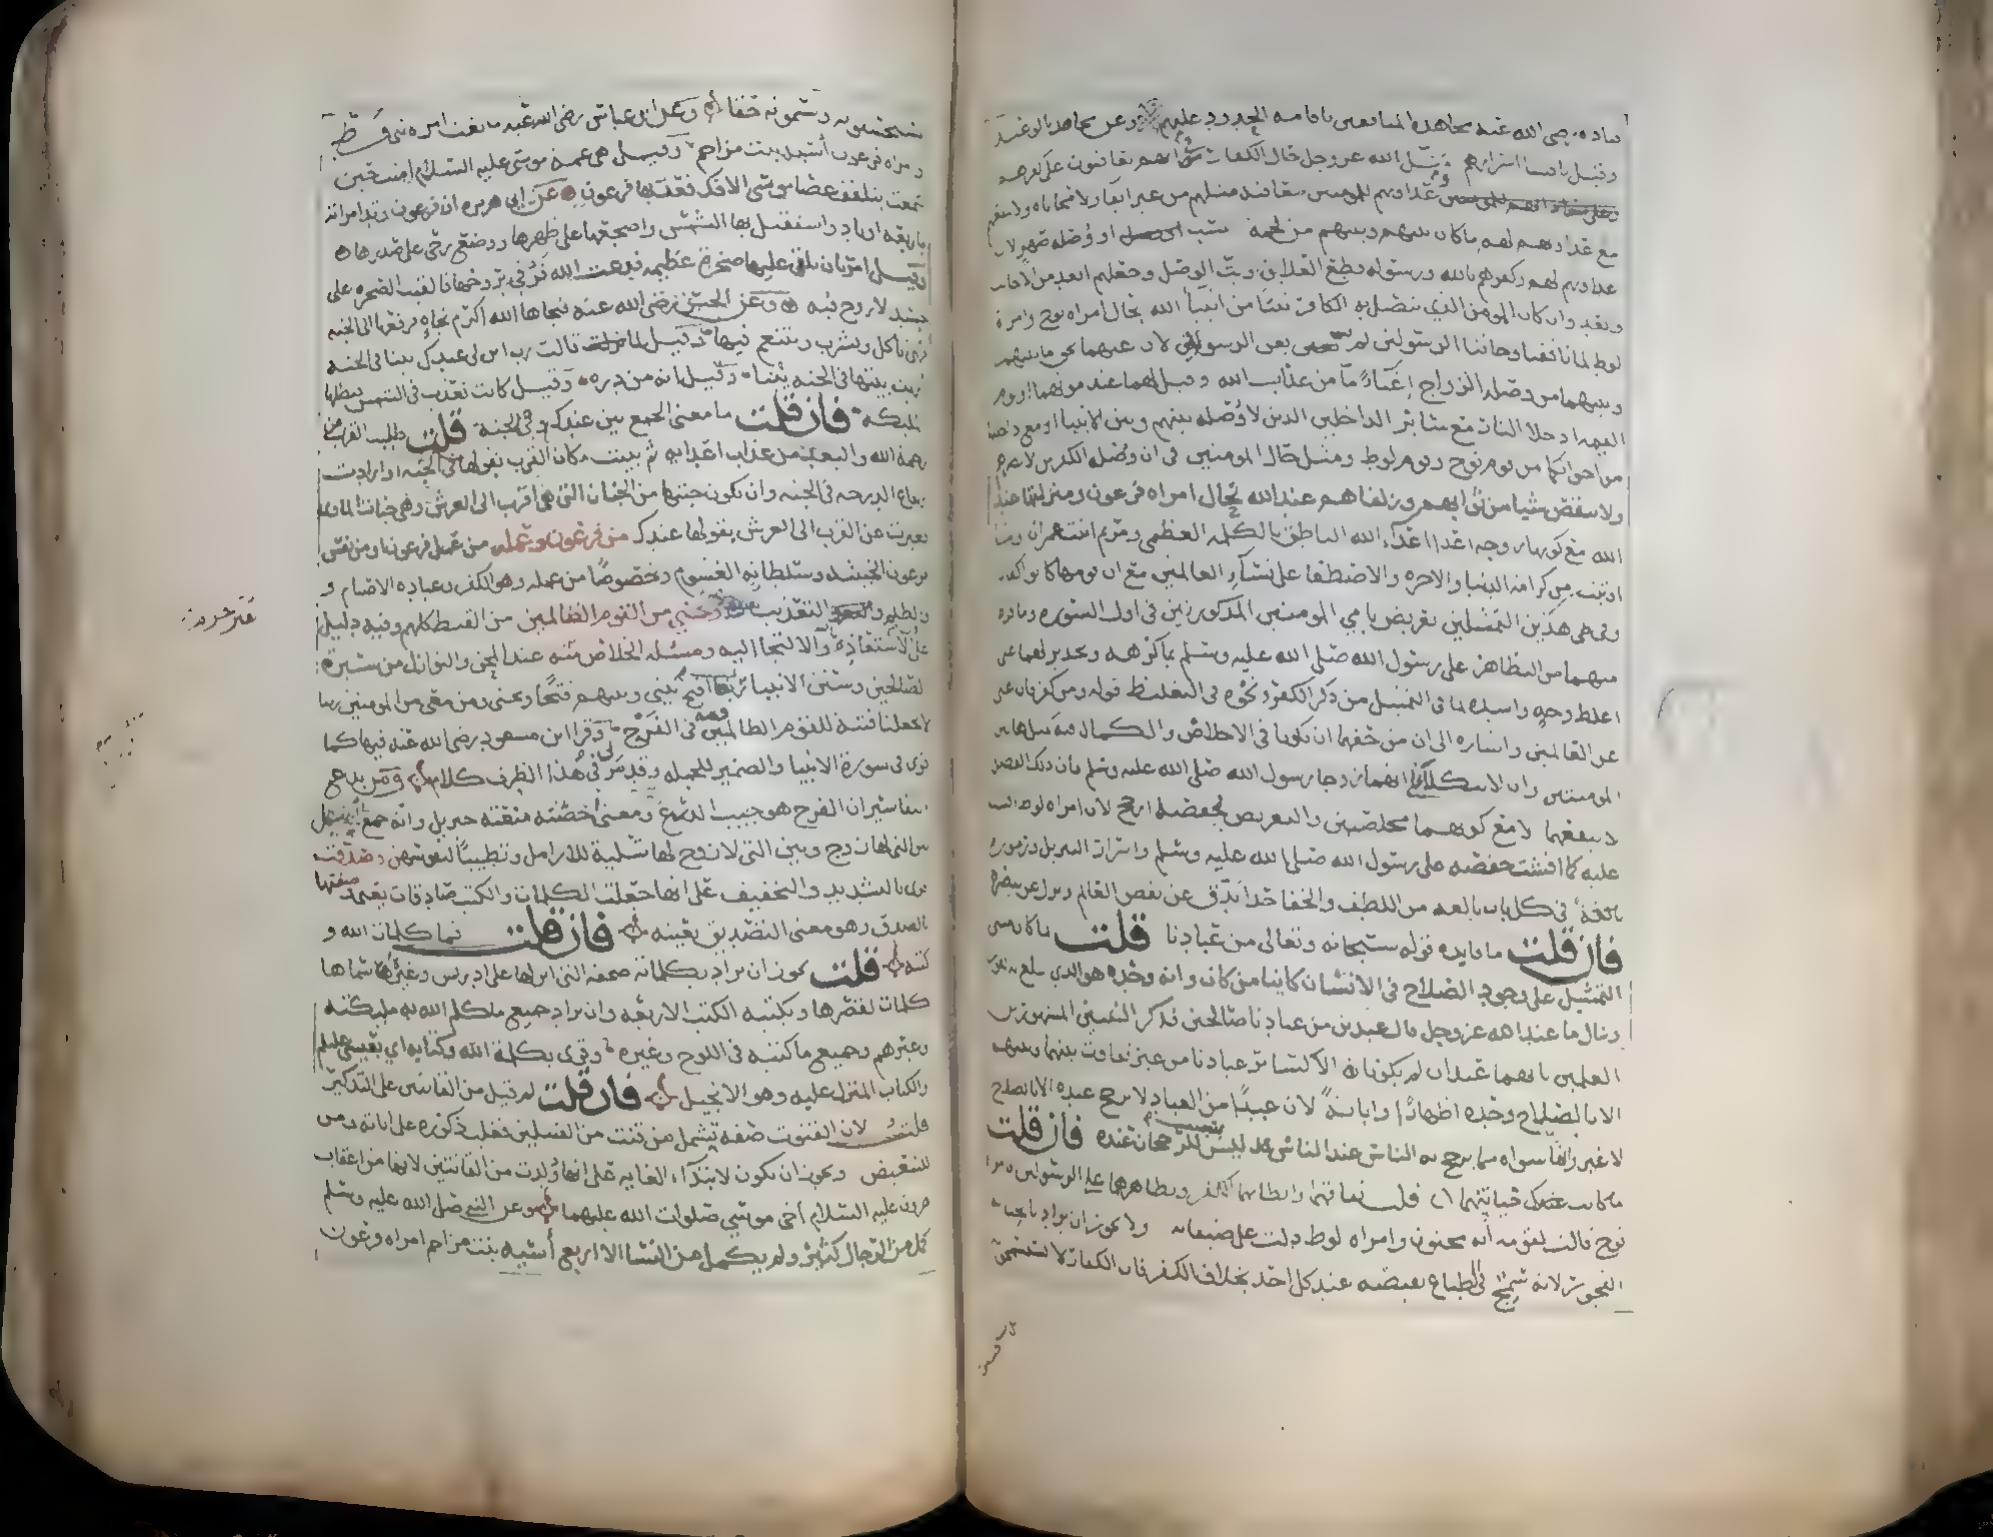 قتاده رضى الله عنه مجاهدة المنافقين باقامة الحدود عليهم وعن مجاهد بالوعيد
وقيل بافشا اسرارهم مثل الله عز وجل حال الكفار فى انهم يعاقبون على كفرهم
وعداوتهم للمومنين معاقبة مثلهم من غير ابقا ولا محاباه ولا ينفعهم
مع عداوتهم لهم ما كان بينهم وبينهم من لحمة نسب او وصله صهر لان
عداوتهم لهم وكفرهم بالله ورسوله قطع العلايق وبت الوصل وجعلهم ابعد من الاجانب
وبعد وان كان المومن الذي يتصل به الكافر نبيا من انبيا الله بحال امراه نوح وامراة
لوط لما نافقتا وخانتا الرسولين لم يغن الرسولان عنهما بحق ما بينهما
وبينهما من وصله الزواج اغناء ما من عذاب الله وقيل لهما عند موتهما او يوم
القيمه ادخلا النار مع سائر الداخلين الذين لا وصله بينهم وبين الانبيا او مع داخليها
من اخوانكما من قوم نوح وقوم لوط ومثل حال المومنين فى ان وصله الكافرين لا تضرهم
ولا تنقص شيا من ثوابهم وزلفاهم عند الله بحال امراه فرعون ومنزلتها عند
الله مع كونها زوجه اعدا اعداء الله الناطق بالكلمه العظمى ومريم ابنت عمران وما
اوتيت من كرامه الدنيا والاخره والاصطفا على نساء العالمين مع ان قومها كانوا كفارا
وفى طى هذين التمثيلين تعريض بامي المومنين المذكورتين فى اول السوره وما فرط
منهما من التظاهر على رسول الله صلى الله عليه وسلم بما كرهه وتحذير لهما على
اغلظ وجه واشده لما فى التمثيل من ذكر الكفر ونحوه فى التغليظ قوله ومن كفر فان الله غنى
عن العالمين واشاره الى ان من حقهما ان تكونا فى الاخلاص والكمال فيه كمثل هاتين
المومنتين وان لا تتكلا على انهما زوجا رسول الله صلى الله عليه وسلم فان ذلك الفضل
لا ينفعهما الا مع كونهما مخلصتين والتعريض بحفصه ارجح لان امراه لوط افشت
عليه كما افشت حفصه على رسول الله صلى الله عليه وسلم واسرار التنزيل ورموزه
بالغة فى كل باب من اللطف والخفا حدا يدق عن تفطن العالم ويزل عن تبصره
فان قلت ما فايده قوله سبحانه وتعالى من عبادنا قلت لما كان مبنى
التمثيل على وجود الصلاح فى الانسان كاينا من كان وانه وحده هو الذي يبلغ به الفوز
وينال ما عند الله عز وجل قال عبدين من عبادنا صالحين فذكر النبيين المشهورين
العلمين بانهما عبدان لم يكونا الا كسائر عبادنا من غير تفاوت بينهما وبينهم
الا بالصلاح وحده اظهارا وابانة لان عبدا من العباد لا يرجح عبده الا بالصلاح
لا غير وان ما سواه مما يرجح به الناس عند الناس ليس بسبب للرجحان عنده فان قلت
ما كانت خيانتهما قلت نفاقهما وابطانهما الكفر وتظاهرهما على الرسولين فامراة
نوح قالت لقومه انه مجنون وامراه لوط دلت على ضيفانه ولا يجوز ان يراد بالخيانة
الفجور لانه سمج فى الطباع نقيصه عند كل احد بخلاف الكفر فان الكفار لا تستسمجه
بل يستحسنونه ويسمونه حقا وعن ابن عباس رضى الله عنه ما بغت امراه نبى قط
وامراه فرعون آسيه بنت مزاحم وقيل هى عمة موسى عليه السلام امنت حين
سمعت بتلقف عصا موسى الافك فعذبها فرعون عن ابى هريره ان فرعون وتد امراته
باربعه اوتاد واستقبل بها الشمس واضجعها على ظهرها ووضع رحى على صدرها
وقيل امر بان تلقى عليها صخره عظيمه فدعت الله فرقى بروحها فالقيت الصخره على
جسد لا روح فيه وعن الحسن رضى الله عنه فنجاها الله اكرم نجاه فرفعها الى الجنه
فهى تاكل وتشرب وتتنعم فيها وقيل لما قالت رب ابن لى عندك بيتا فى الجنه
اريت بيتها فى الجنه يبنى وقيل انه من دره وقيل كانت تعذب فى الشمس فتظلها
الملئكة فان قلت ما معنى الجمع بين عندك وفى الجنة قلت طلبت القرب من
رحمة الله والبعد من عذاب اعدايه ثم بينت مكان القرب بقولها فى الجنه او ارادت
ارتفاع الدرجه فى الجنه وان تكون جنتها من الجنان التى هى اقرب الى العرش وهى جنات الماوى
فعبرت عن القرب الى العرش بقولها عندك من فرعون وعمله من عمل فرعون او من نفس
فرعون الخبيثه وسلطانه الغشوم وخصوصا من عمله وهو الكفر وعباده الاصنام و
والظلم والتعذيب ونجني من القوم الظالمين من القبط كلهم وفيه دليل
على ان الاستعاذة والالتجا اليه ومسئله الخلاص منه عند المحن والنوازل من سيرة
الصالحين وسنن الانبيا ربنا افتح بينى وبينهم فتحا ونجنى ومن معى من المومنين ربنا
لا تجعلنا فتنة للقوم الظالمين فيه فى الفرج وقرا ابن مسعود رضى الله عنه فيها كما
قرى فى سورة الانبيا والضمير للجمله وقد مر لى فى هذا الظرف كلام ومن بدع
التفاسير ان الفرج هو جيب الدرع ومعنى احصنته منعته جبريل وانه جمع فى التمثيل
بين التى لها زوج وبين التى لا زوج لها تسلية للارامل وتطييبا لنفوسهن وصدقت
قرى بالتشديد والتخفيف على انها جعلت الكلمات والكتب صادقه يعنى وصفتها
بالصدق وهو معنى التصديق بعينه فان قلت فما كلمات الله و
كتبه قلت يجوز ان يراد بكلماته صحفه التى انزلها على ادريس وغيره سماها
كلمات لقصرها وبكتبه الكتب الاربعه وان يراد جميع ما كلم الله به ملئكته
وغيرهم وجميع ما كتبه فى اللوح وغيره وقرى بكلمة الله وكتابه اي بعيسى عليه السلام
والكتاب المنزل عليه وهو الانجيل فان قلت لم قيل من القانتين على التذكير
قلت لان القنوت صفه تشمل من قنت من القبيلين فغلب ذكوره على اناثه ومن
للتبعيض ويجوز ان تكون لابتداء الغايه على انها ولدت من القانتين لانها من اعقاب
هرون عليه السلام اخى موسى صلوات الله عليهما وعن النبى صلى الله عليه وسلم
كمل من الرجال كثير ولم يكمل من النسا الا اربع آسيه بنت مزاحم امراه فرعون